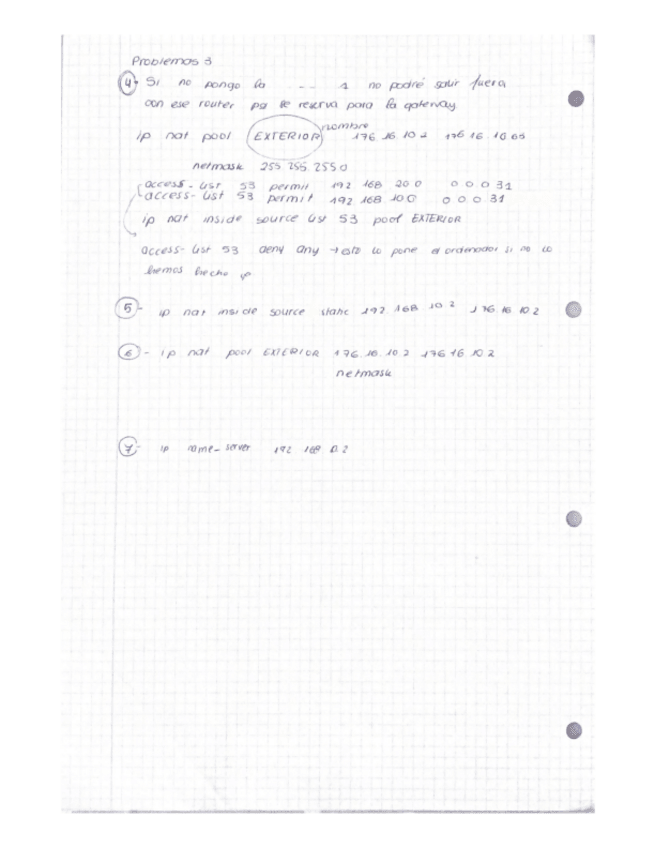 Problemas 3
4- Si no pongo la --- 1 no podré salir fuera
con ese router pq se reserva para la gateway
nombre
ip nat pool EXTERIOR 176.16.10.2 176.16.10.65
netmask 255.255.255.0
access-list 53 permit 192.168.20.0 0.0.0.31
access-list 53 permit 192.168.10.0 0.0.0.31
ip nat inside source list 53 pool EXTERIOR
access-list 53 deny any → esto lo pone el ordenador si no lo
hemos hecho yo
5- ip nat inside source static 192.168.10.2 176.16.10.2
6- ip nat pool EXTERIOR 176.16.10.2 176.16.10.2
netmask
7- ip name-server 192.168.0.2